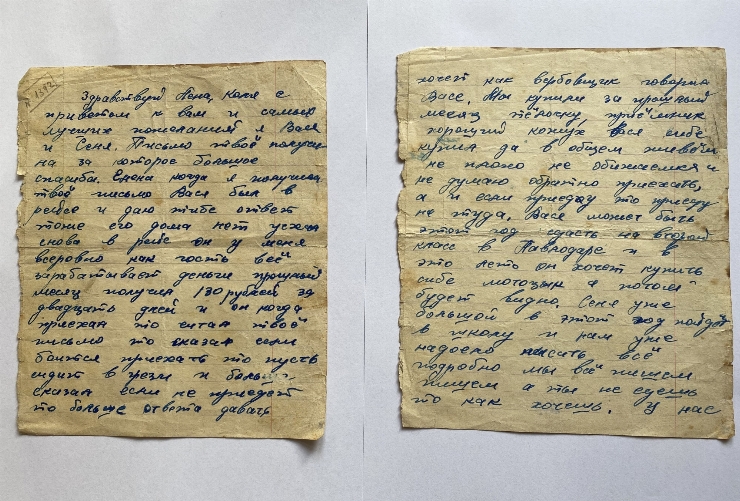 Здравствуй Лена, Коля с
приветом к вам и самых
лучших пожеланий я Вася
и Сеня. Письмо твоё получи
на за которое большое
спасибо. Елена когда я получила
твоё письмо Вася был в
рейсе и даю тибе ответ
тоже его дома нет уехал
снова в рейс он у меня
всеровно как гость всё
зарабатывает деньги прошлый
месяц получил 130 рублей за
двадцать дней и он когда
приехал то читал твоё
письмо то сказал если
боится приехать то пусть
сидит в грязи и больше
сказал если не приедет
то больше ответа давать
хочет как вербовщик говорил
Васе. Мы купили за прошлый
месяц тёлочку, приёмник
хороший кожух Вася сибе
купил да в общем живём
не плохо не обижаемся и
не думаю обратно приехать,
а и если приеду то приеду
не туда. Вася может быть
этот год сдасть на второй
класс в Павлодаре и в
это лето он хочет купить
сибе мотоцыкл а потом
будет видно. Сеня уже
большой в этот год пойдёт
в школу и нам уже
надоело писать всё
подробно мы всё пишем
пишем а ты не едешь
то как хочешь. У нас